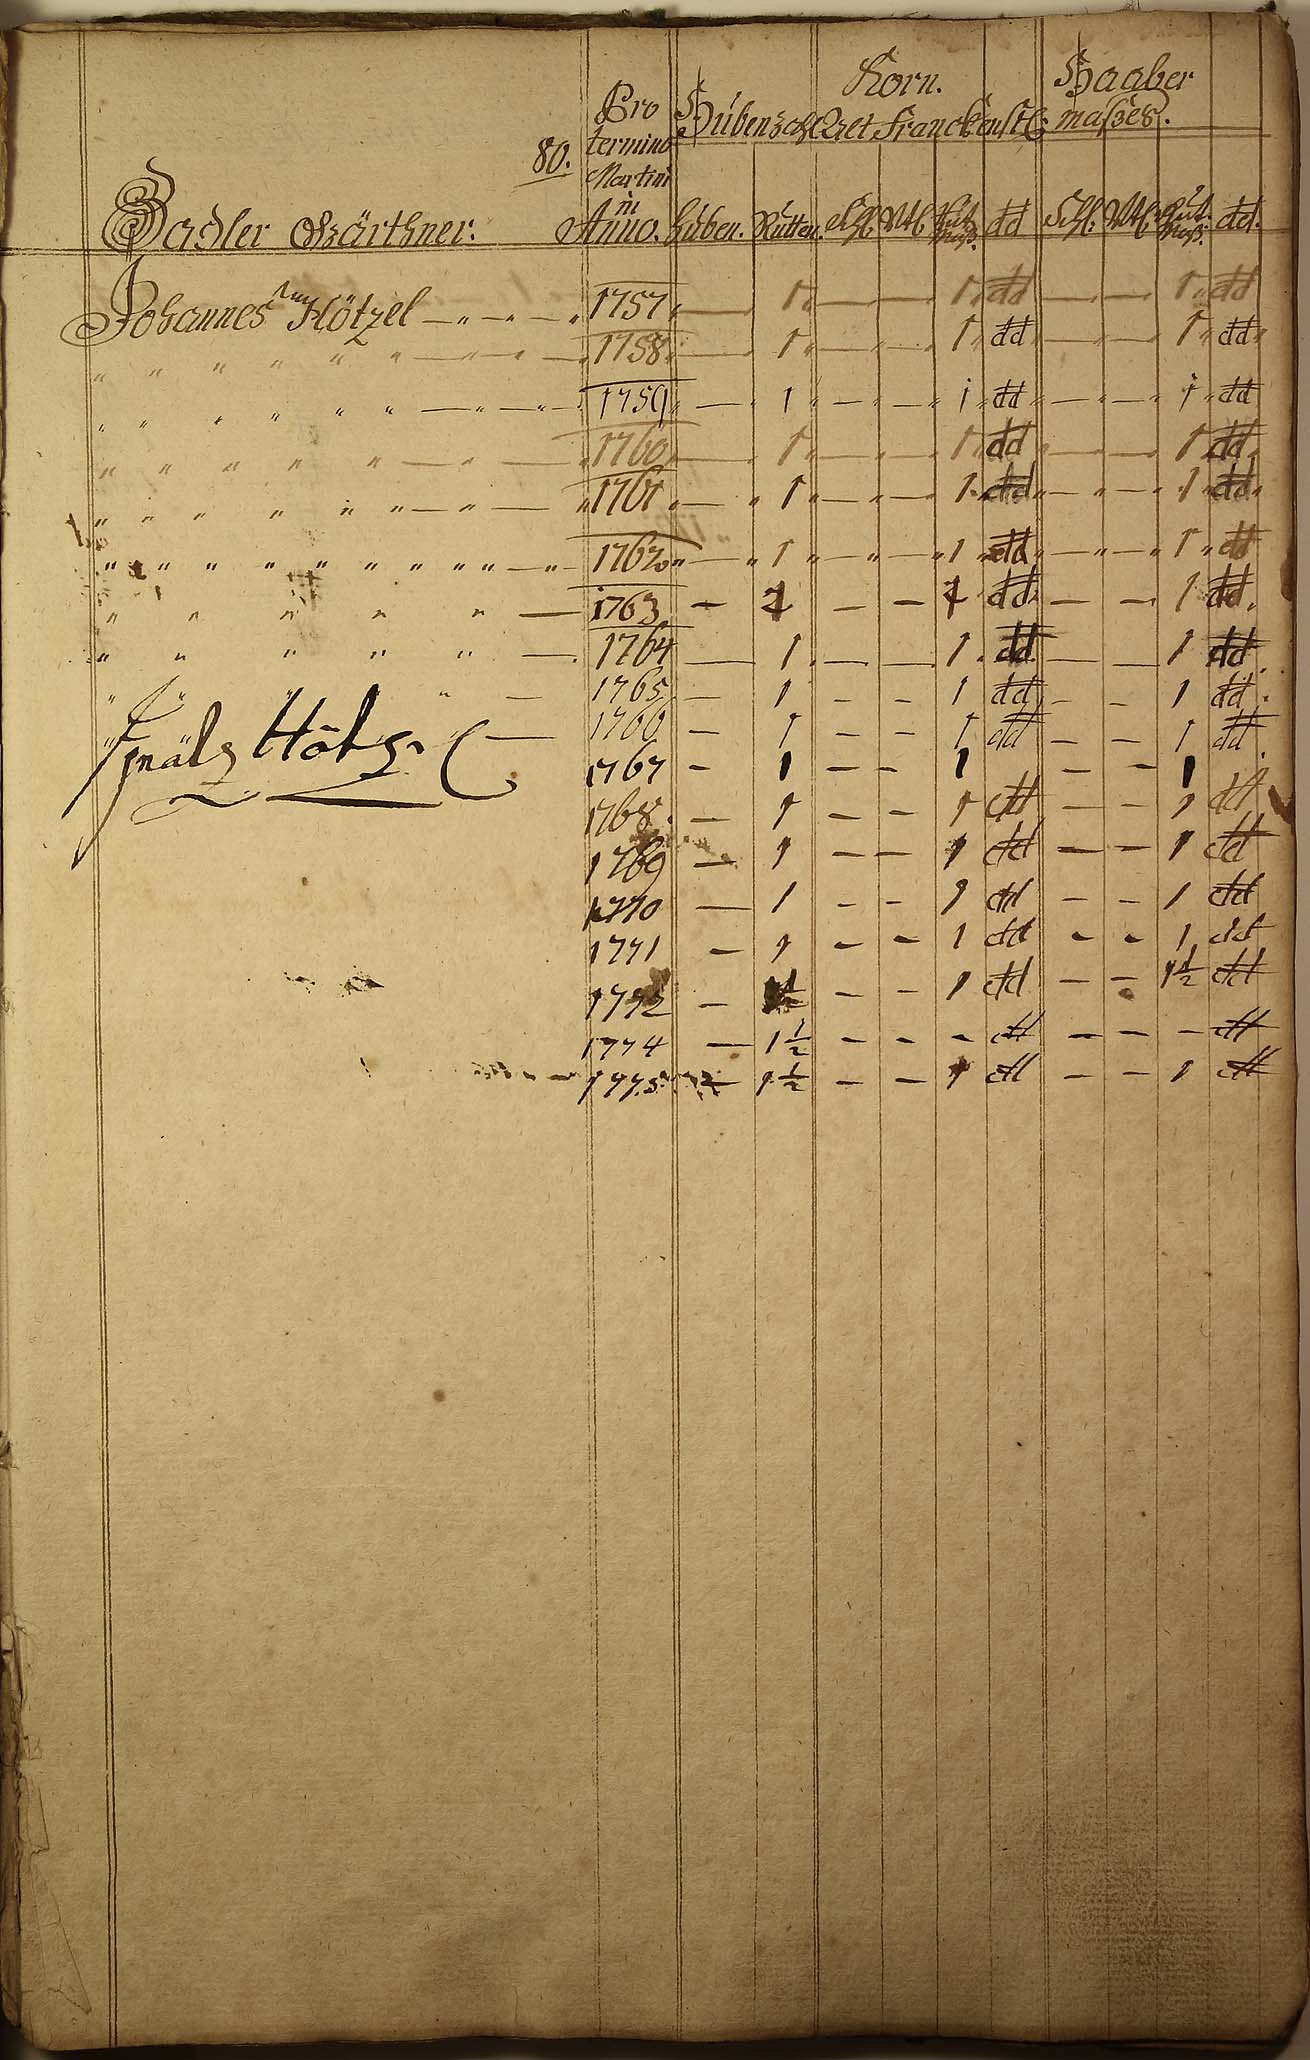 80.
Pro termino Martini in Anno.
Korn.
Haaber
Hubenzahl
maßes.
Gärthner:
Huben. Rutten. dd dd.
Johannes Hötzel — „ — „ — „ 1757 „ — 1 „ — — 1 „ dd — — 1 „ dd
„ „ „ „ „ „ — „ — „ 1758 „ — 1 „ — „ — 1 „ dd — „ — 1 „ dd
„ „ „ „ „ „ — „ — „ 1759 „ — 1 „ — „ — „ 1 „ dd „ — „ — „ 1 „ dd
„ „ „ „ „ — „ — „ 1760 „ — 1 „ — „ — 1 „ dd „ — „ — 1 „ dd
„ „ „ „ „ „ — „ — „ 1761 „ — „ 1 „ — „ — 1 „ dd „ — „ — „ 1 „ dd
„ „ „ „ „ „ „ „ „ „ — „ — 1762 „ — „ 1 „ — „ — „ 1 „ dd „ — „ — „ 1 „ dd
„ „ „ „ „ — 1763 — 1 — — 1 dd — — 1 dd.
„ „ „ „ „ — 1764 — 1 — — 1 dd — — 1 dd
„ „ „ „ — 1765 — 1 — — 1 dd — — 1 dd
— 1766 — 1 — — 1 dd — — 1 dd
Hötz 1767 — 1 — — 1 — — 1
1768 — 1 — — 1 dd — — 1 dd
1769 — 1 — — 1 dd — — 1 dd
1770 — 1 — — 1 dd — — 1 dd
1771 — 1 — — 1 dd — — 1 dd
1772 — — — 1 dd — — 1½ dd
1774 — 1½ — — — dd — — — dd
1775 — 1½ — — 1 dd — — 1 dd